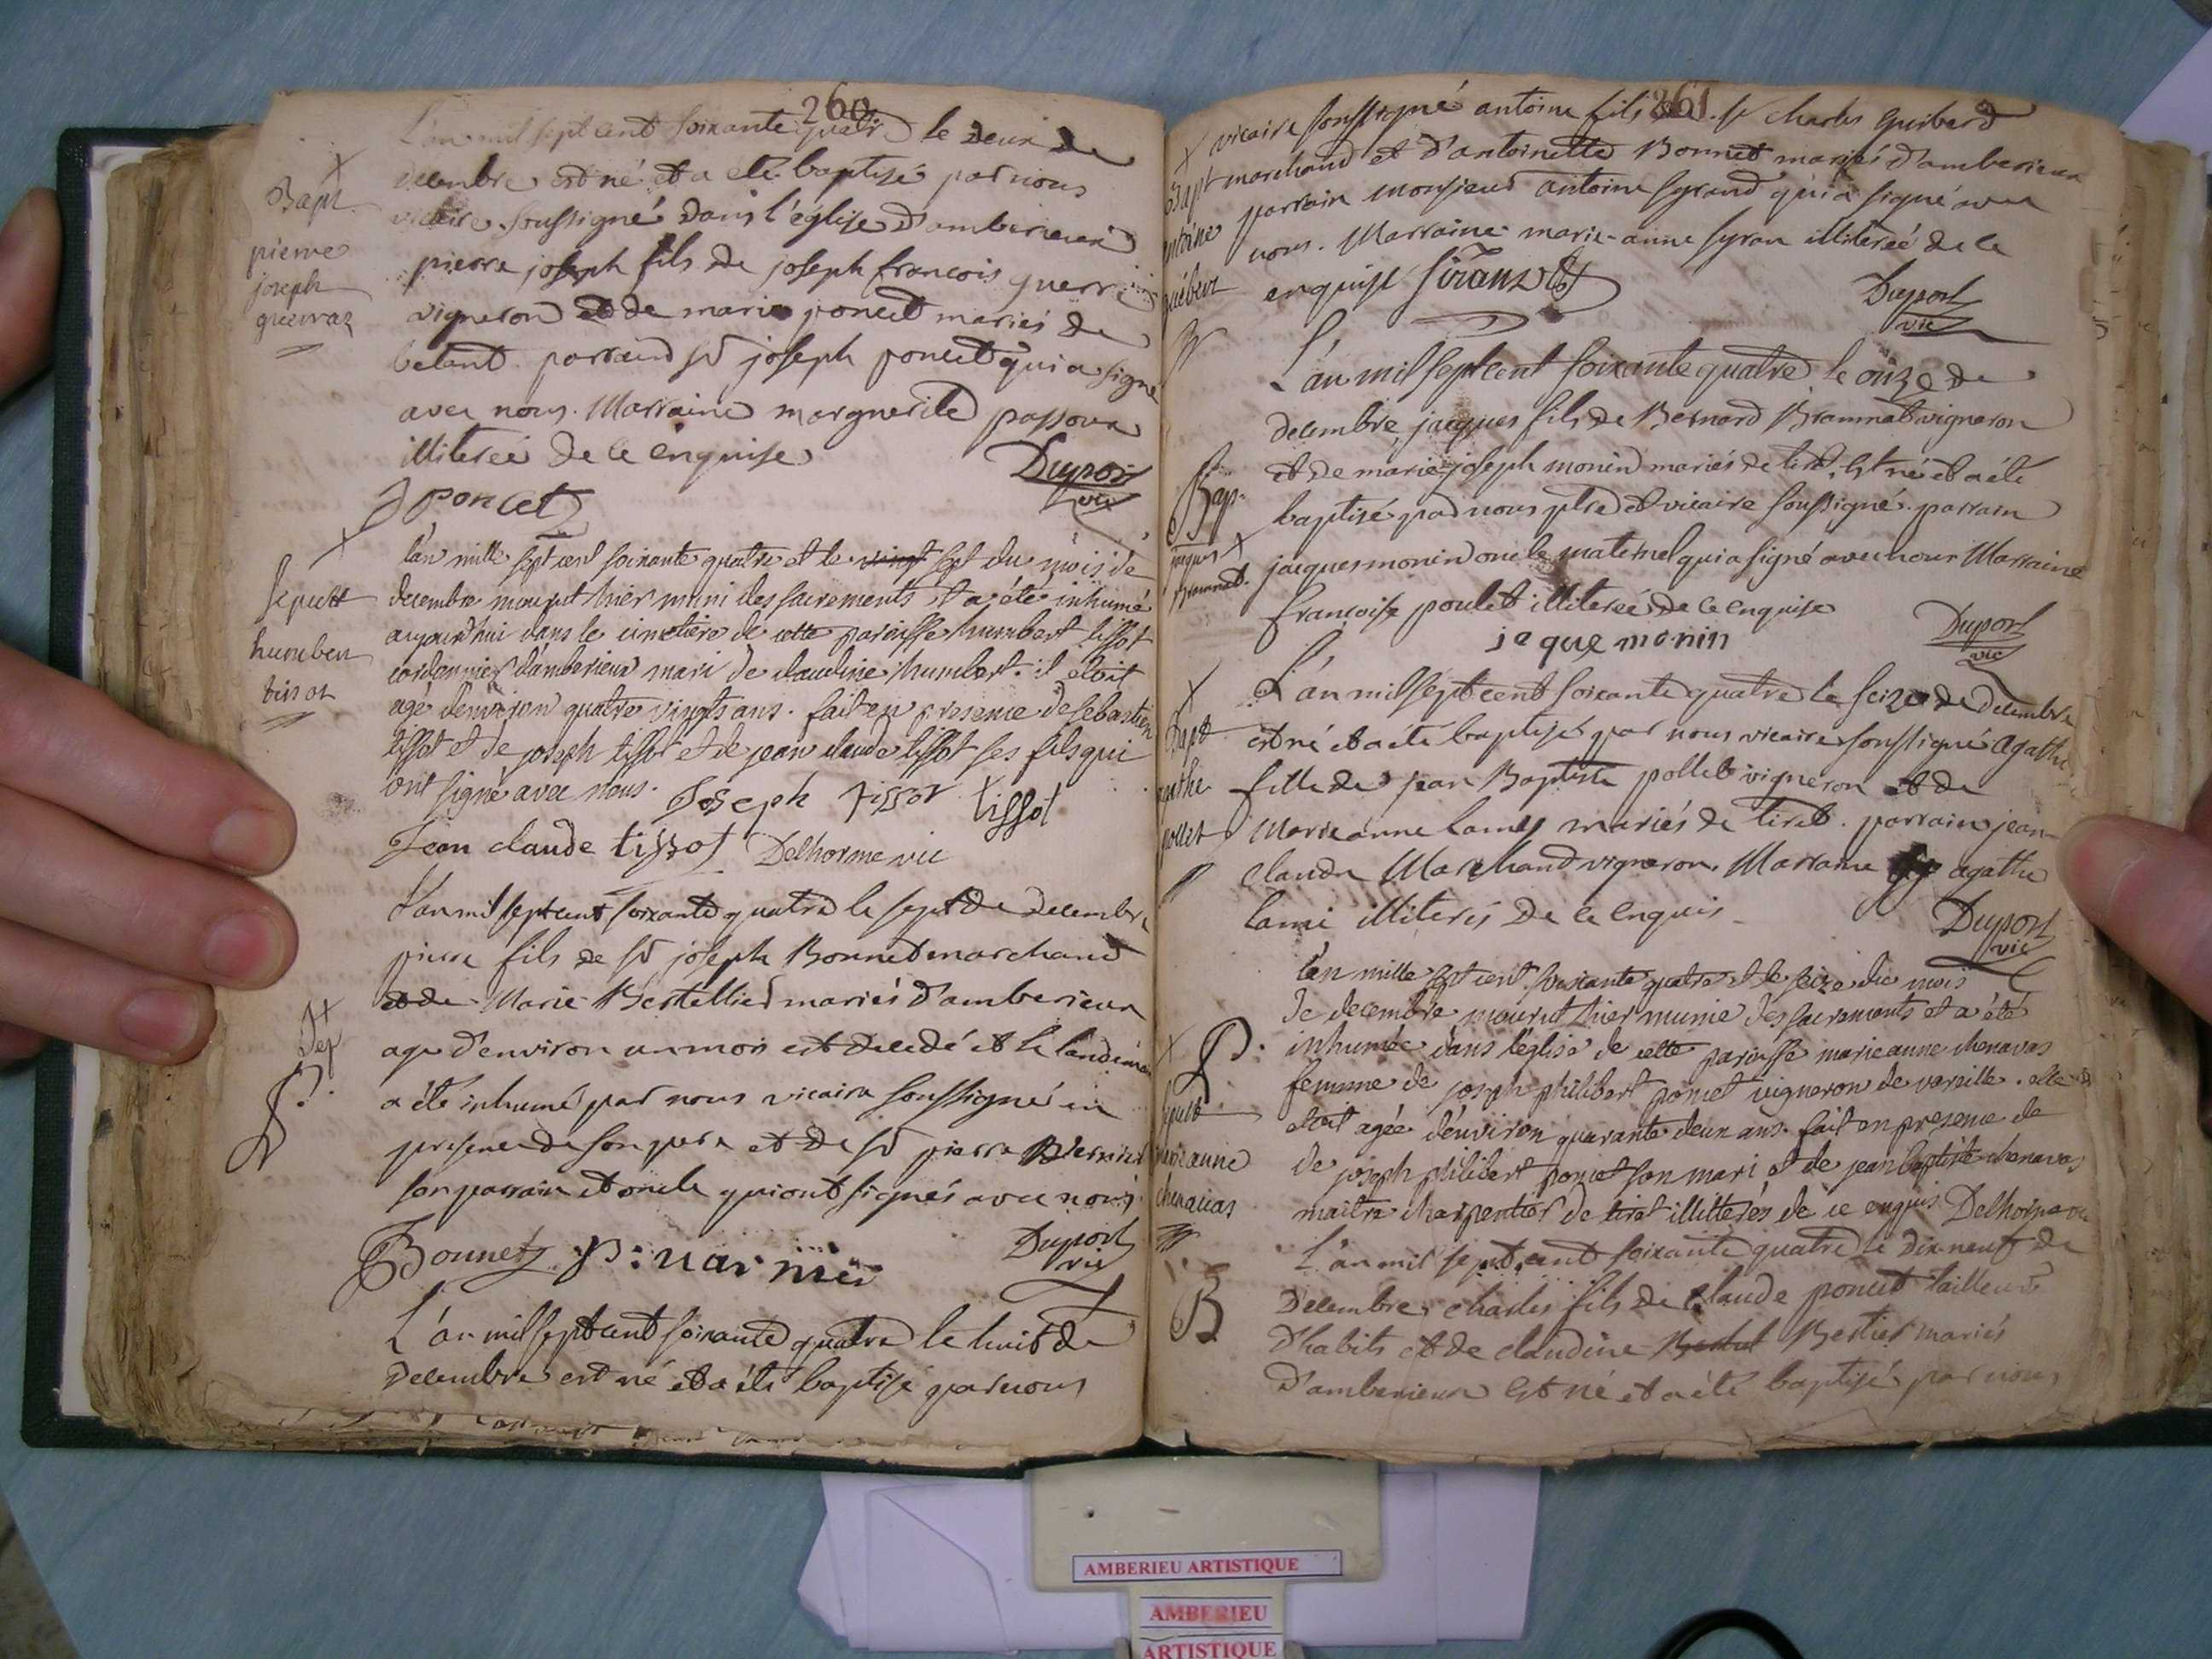 260
L'an mil sept cent soixante quatre le deux de
Bapt
decembre est né et a eté baptisé par nous
vicaire soussigné dans l'église d'amberieux
pierre
joseph
guerraz
pierre joseph fils de joseph francois guerr
vigneron et de marie poncet mariés de
betant. parrain sr joseph poncet qui a signé
avec nous. Marraine marguerite passoura
illiterée de ce enquise
Dupont
vic
J poncet
Sepult
humbert
tissot
l'an mille sept cent soixante quatre et le vingt sept du mois de
decembre mourut hier muni des sacrements et a été inhumé
aujourd'hui dans le cimetière de cette paroisse humbert tissot
cordonnier d'amberieux mari de claudine humbert. il etoit
agé denviron quatre vingts ans. fait en presence de sebastien
tissot et de joseph tissot et de jean claude tissot ses fils qui
ont signé avec nous. Joseph tissot tissot
Jean claude tissot Delhorme vic
L'an mil sept cent soixante quatre le sept de decembre
pierre fils de sr joseph Bonnet marchand
et de Marie Bertellier mariés d'amberieux
Sep
age d'environ un mois est decedé et le landemain
a été inhumé par nous vicaire soussigné en
presence de son pere et de sr pierre
son parrain et oncle qui ont signés avec nous
Bonnet P: varnier
Dupont
vic
L'an mil sept cent soixante quatre le huit de
decembre est né et a été baptisé par nous
261
vicaire soussigné antoine fils de sr charles Guibert
Bapt
antoine
guibert
marchand et d'antoinette Bonnet mariés d'amberieux
parrain monsieur antoine syrand qui a signé avec
nous. Marraine marie-anne syran illiterée de ce
enquise Sirand
Dupont
vic
L'an mil sept cent soixante quatre le onze de
decembre jacques fils de Bernard Brammet vigneron
Bap
jaques
Brammet
et de marie joseph monin mariés de tiret. est né et a été
baptisé par nous ptre et vicaire soussigné. parrain
jacques monin oncle maternel qui a signé avec nous Marraine
francoise poulet illiterée de ce enquise
jaque monin
Dupont
vic
Bapt
agathe
pollet
L'an mil sept cent soixante quatre le seize de decembre
est né et a été baptisé par nous vicaire soussigné agathe
fille de jean Baptiste pollet vigneron et de
Marie anne lamy mariés de tiret. parrain jean
claude Marchand vigneron. Marraine agathe
lami illiterés de ce enquis
Dupont
vic
l'an mille sept cent soixante quatre et le seize du mois
de decembre mourut hier munie des sacrements et a été
Sepult
marieanne
chenavas
inhumée dans l'eglise de cette paroisse marieanne chenavas
femme de joseph philibert poncet vigneron de vareille. elle
etoit agée d'environ quarante deux ans. fait en presence de
de joseph philibert poncet son mari et de jean baptiste chenavas
maitre charpentier de tiret illitterés de ce enquis Delhorme vic
B
L'an mil sept cent soixante quatre le dix neuf de
decembre, charles fils de claude poncet tailleur
d'habits et de claudine Bertier mariés
d'amberieux est né et a été baptisé par nous
AMBERIEU ARTISTIQUE
AMBERIEU
ARTISTIQUE